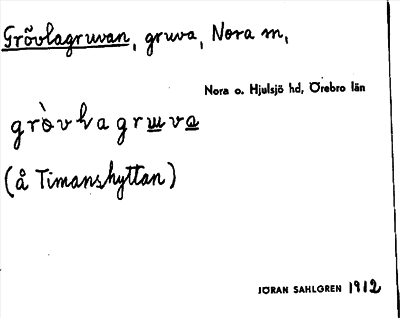 Grövlagruvan, gruva, Nora m,
Nora o. Hjulsjö hd, Örebro län
gròvlagruva
(å Timanshyttan)
JÖRAN SAHLGREN 1912